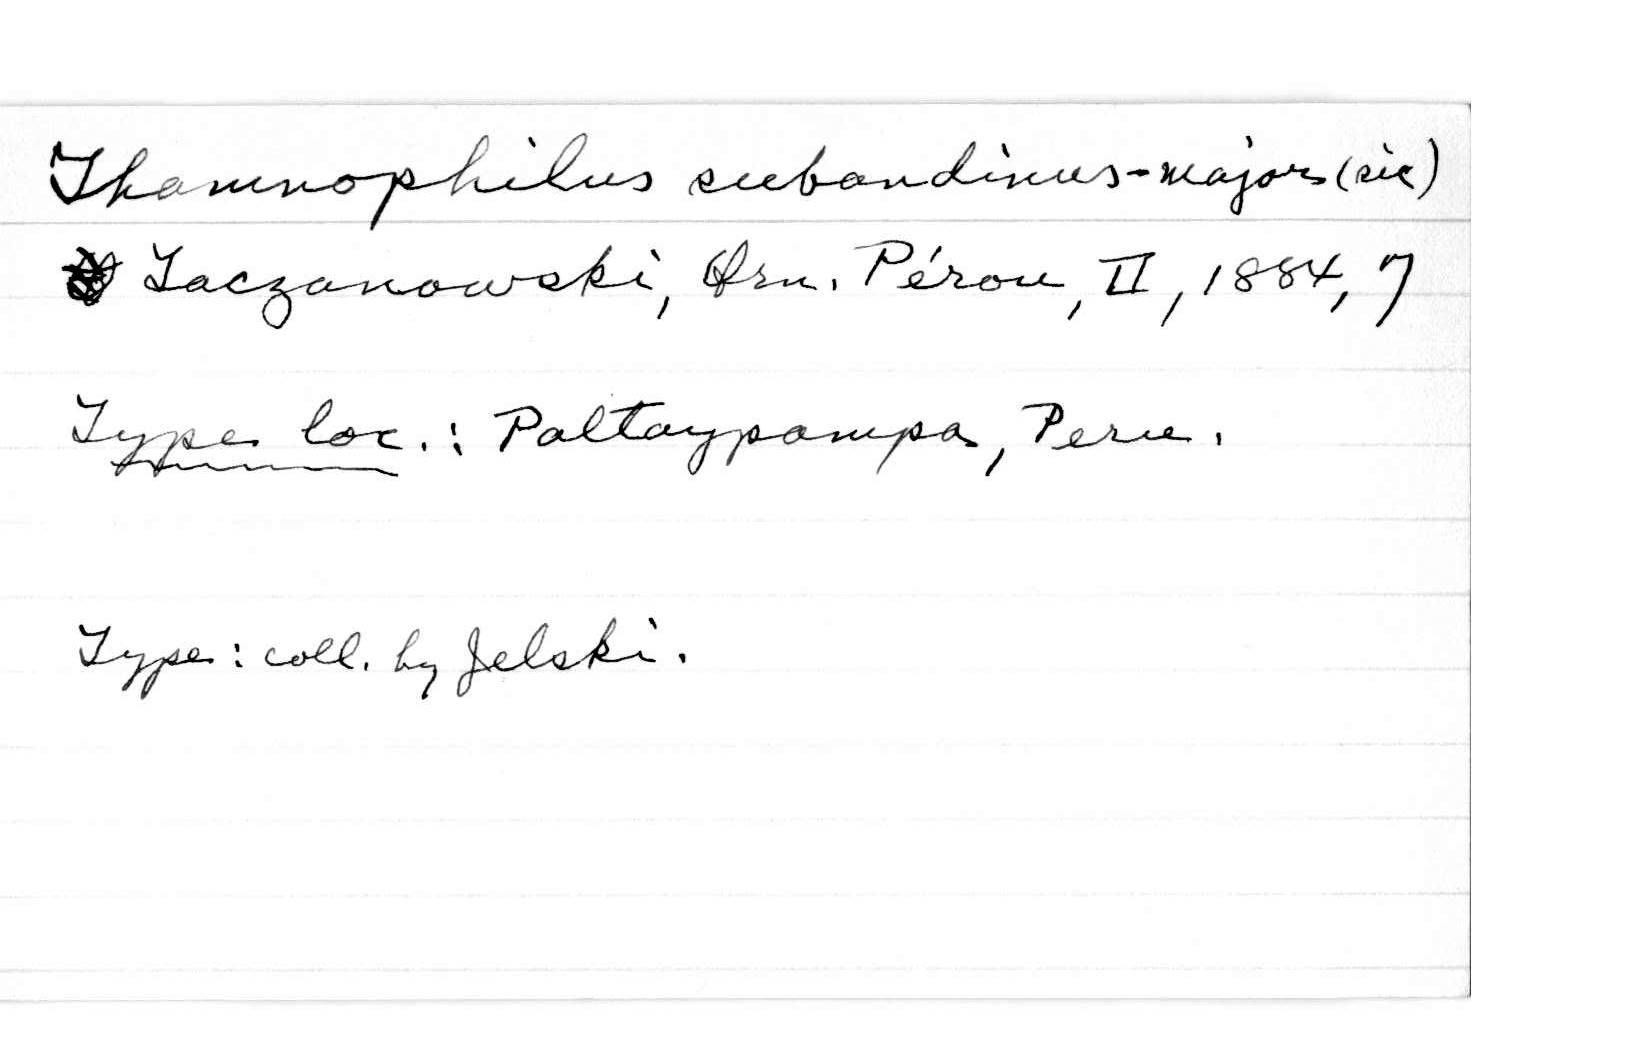 Thamnophilus subandinus-major (sic)
Taczanowski, Orn. Pérou, II, 1884, 7
Type loc.: Paltaypampa, Peru.
Type: coll. by Jelski.